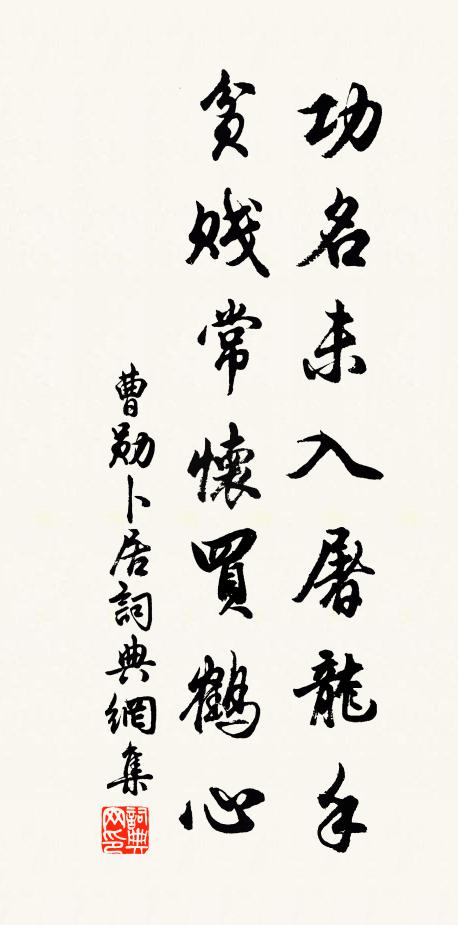 功名未入屠龍手
貧賤常懷買鶴心
曹勛卜居詞典網集
詞典网印